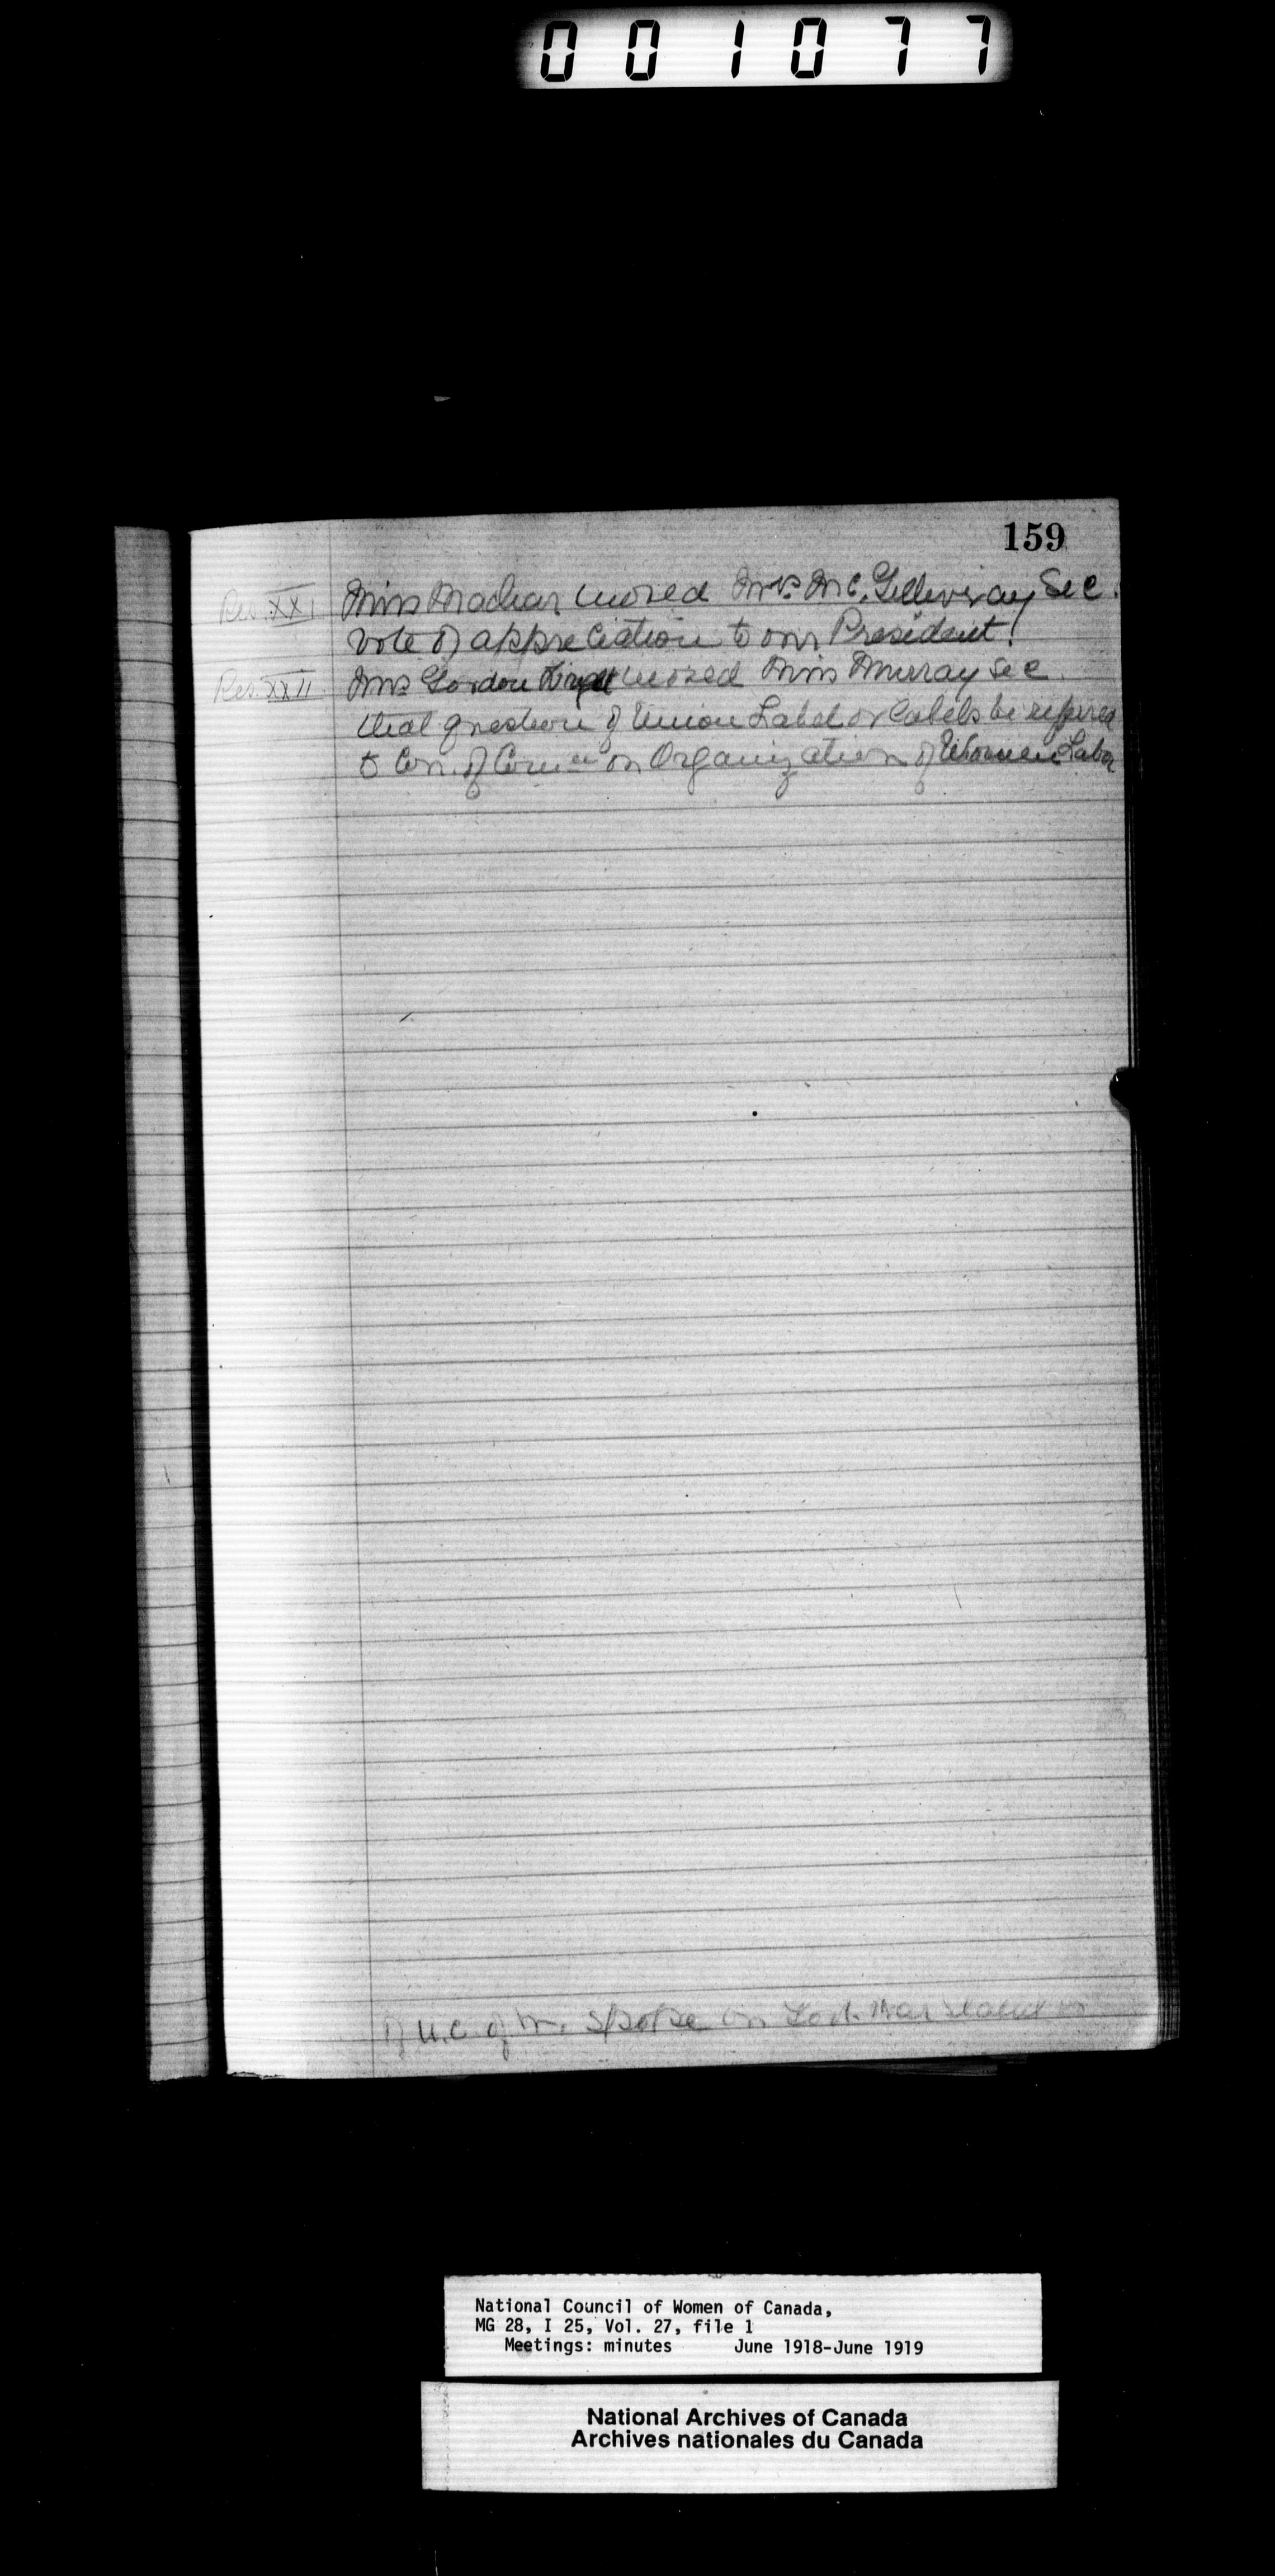 001077
159
Res. XXI Miss Machar moved Mrs. McGillivray Sec.
vote of appreciation to our President!
Res. XXII Mrs Gordon Wright moved Miss Murray Sec.
that question of Union Label or labels be referred
to Con. of Comee on Organization of Women Labor
of N.C. of W. spoke on
National Council of Women of Canada,
MG 28, I 25, Vol. 27, file 1
Meetings: minutes June 1918-June 1919
National Archives of Canada
Archives nationales du Canada